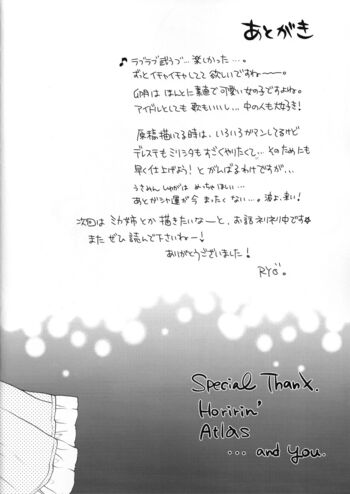 あとがき
♪ラブラブ武うづ…楽しかった…。
ずっとイチャイチャしてて欲しいですね〜〜。
はほんとに素直で可愛い女の子ですよね。
アイドルとしても歌もいいし…中の人も大好き!
原稿描いてる時は、いろいろガマンしてるけど
デレステもミリシタもすごくやりたくて…そのためにも
早く仕上げよう!とがんばるわけですが…
うさめん しゅがは めっちゃほしい…
あとガシャ運が今まったくない…。波よ、来い!
次回はミカ姉とか描きたいなーと、お話ネリネリ中です
またぜひ読んで下さいねー!
ありがとうございました!
RYO。
Special Thanx.
Horirin'
Atlas
... and you.